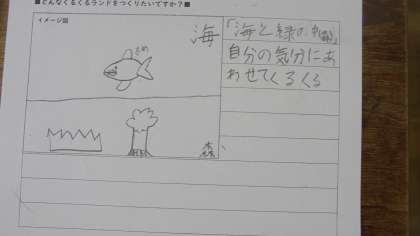 ■どんなくるくるランドをつくりたいですか？■
イメージ図
海
さめ
森
「海と緑の
自分の気分にあ
わせてくるくる